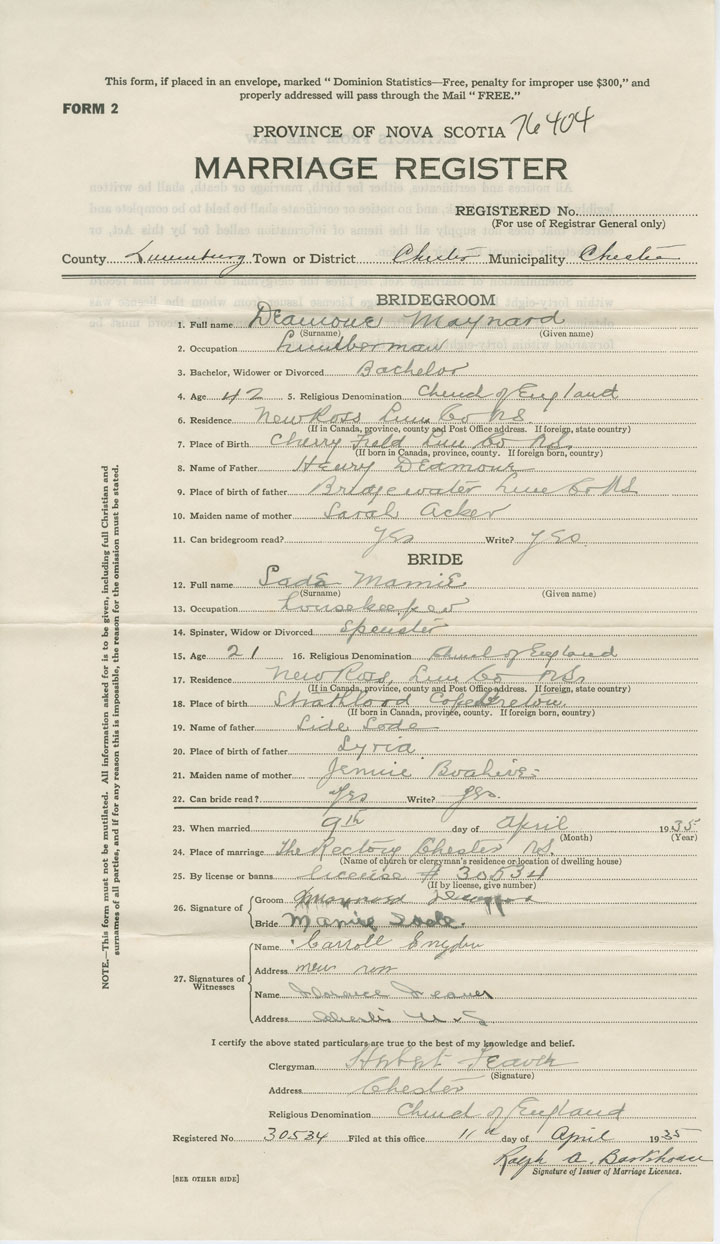 This form, if placed in an envelope, marked " Dominion Statistics—Free, penalty for improper use $300," and
properly addressed will pass through the Mail " FREE."
FORM 2
PROVINCE OF NOVA SCOTIA 76404
MARRIAGE REGISTER
REGISTERED No.
(For use of Registrar General only)
County Lunenburg Town or District Chester Municipality Chester
BRIDEGROOM
1. Full name Deamone Maynard
(Surname) (Given name)
2. Occupation Lumberman
3. Bachelor, Widower or Divorced Bachelor
4. Age 42 5. Religious Denomination Church of England
6. Residence New Ross Lun Co N.S.
(If in Canada, province, county and Post Office address. If foreign, state country)
7. Place of Birth Cherry Field Lun Co N.S.
(If born in Canada, province, county. If foreign born, country)
8. Name of Father Henry Deamone
9. Place of birth of father Bridgewater Lun Co N.S.
10. Maiden name of mother Sarah Acker
11. Can bridegroom read? yes Write? yes
BRIDE
12. Full name Sode Mamie
(Surname) (Given name)
13. Occupation housekeeper
14. Spinster, Widow or Divorced Spinster
15. Age 21 16. Religious Denomination Church of England
17. Residence New Ross, Lun Co N.S.
(If in Canada, province, county and Post Office address. If foreign, state country)
18. Place of birth Cape Breton
(If born in Canada, province, county. If foreign born, country)
19. Name of father Side Sode
20. Place of birth of father Syria
21. Maiden name of mother Jennie
22. Can bride read? Yes Write? yes.
23. When married 9th day of April 1935
(Month) (Year)
24. Place of marriage The Rectory Chester N.S.
(Name of church or clergyman's residence or location of dwelling house)
25. By license or banns license # 30534
(If by license, give number)
26. Signature of Groom Maynard
Bride Mamie Sode.
27. Signatures of Witnesses Name Carroll Snyder
Address new ross
Name Florence Feaver
Address Chester N.S.
I certify the above stated particulars are true to the best of my knowledge and belief.
Clergyman Herbert Feaver
(Signature)
Address Chester
Religious Denomination Church of England
Registered No. 30534 Filed at this office 11th day of April 1935
Ralph A. Barkhouse
Signature of Issuer of Marriage Licenses.
[SEE OTHER SIDE]
NOTE.—This form must not be mutilated. All information asked for is to be given, including full Christian and
surnames of all parties, and if for any reason this is impossible, the reason for the omission must be stated.